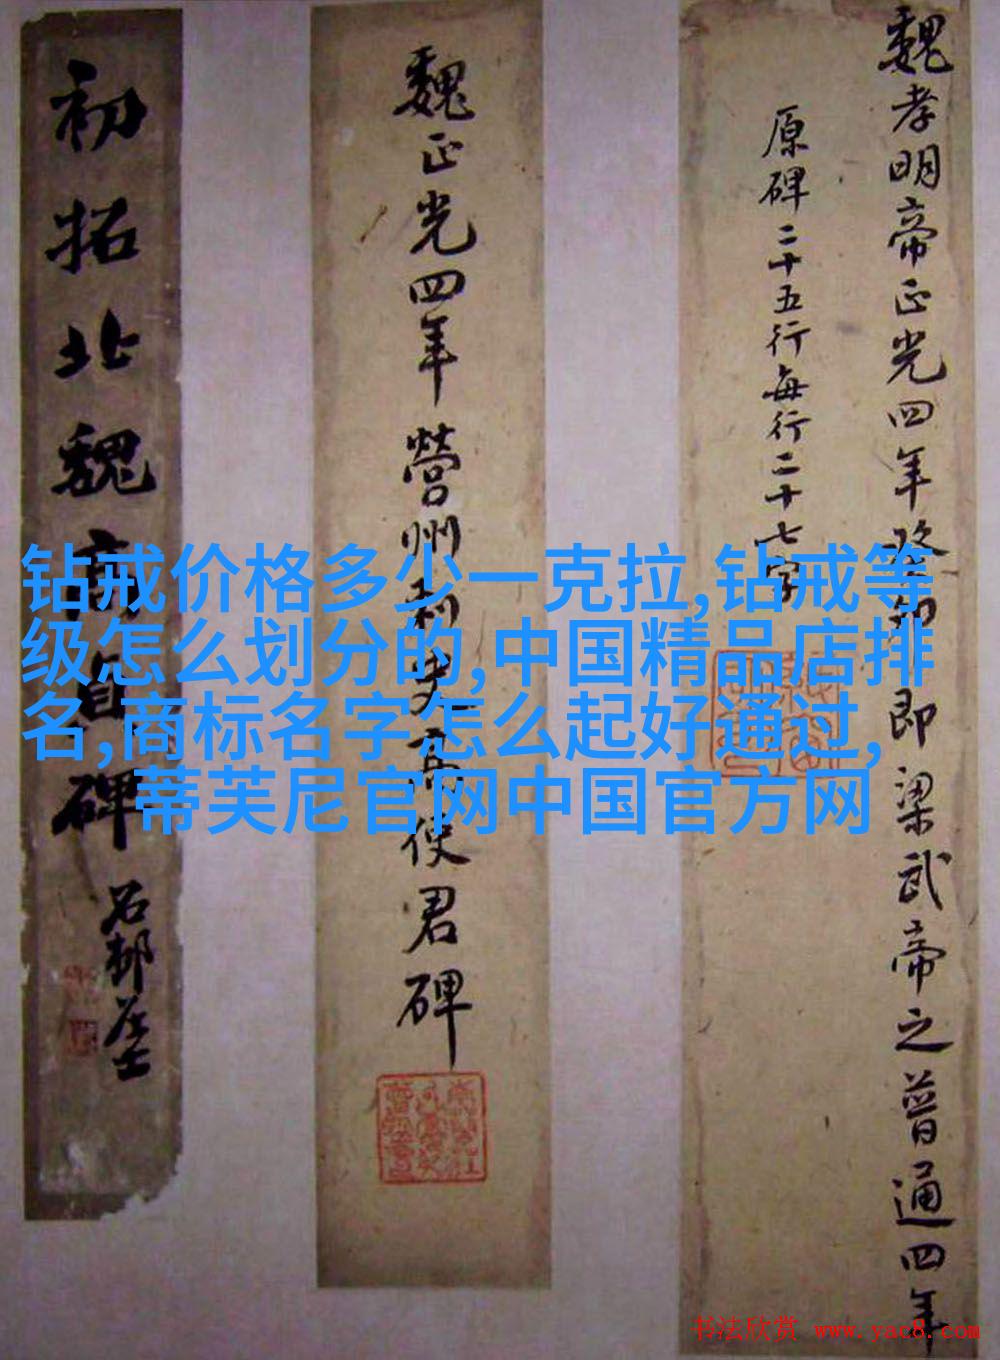 魏孝明帝正光四年癸卯即梁武帝之普通四年
原碑二十五行每行二十七字
魏正光四年營州刺史高使君碑
初拓北魏高貞碑
石邨居士
钻戒价格多少一克拉,钻戒等
级怎么划分的,中国精品店排
名,商标名字怎么起好通过,
蒂芙尼官网中国官方网
书法欣赏 www.yac8.com